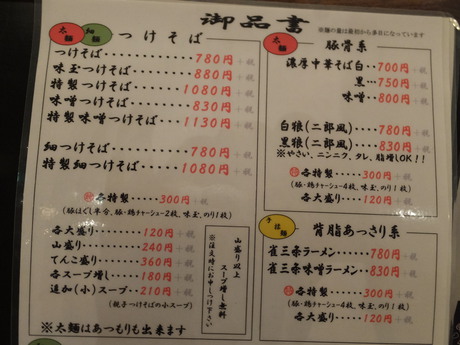 御品書
※麺の量は最初から多目になっています
太麺 細麺 つけそば
つけそば・・・・・・・・・・780円+税
味玉つけそば・・・・・・880円+税
特製つけそば・・・・・・1080円+税
味噌つけそば・・・・・・830円+税
特製味噌つけそば・・・1130円+税
細つけそば・・・・・・・・780円+税
特製細つけそば・・・・1080円+税
各特製・・・・300円+税
(豚ほぐし半分、豚・鶏チャーシュー2枚、味玉、のり1枚)
各大盛り・・・・・120円+税
山盛り・・・・・・・240円+税
てんこ盛り・・・・360円+税
各スープ増し・・・180円+税
追加(小)スープ・・210円+税
(親子つけそばの小スープ)
山盛り以上
スープ増し無料
※注文時にお申し付け下さい
※太麺はあつもりも出来ます
太麺 豚骨系
濃厚中華そば白・・700円+税
黒・・・750円+税
味噌・・・800円+税
白狼(二郎風)・・・・780円+税
黒狼(二郎風)・・・・830円+税
※やさい、ニンニク、タレ、脂増しOK!!
各特製・・・・・・300円+税
(豚・鶏チャーシュー4枚、味玉、のり1枚)
各大盛り・・・・・120円+税
手揉麺 背脂あっさり系
雀三条ラーメン・・・・780円+税
雀三条味噌ラーメン・・830円+税
各特製・・・・・・300円+税
(豚・鶏チャーシュー4枚、味玉、のり1枚)
各大盛り・・・・・120円+税